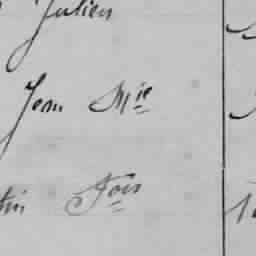 Julien
Jean Mie
tin Fois